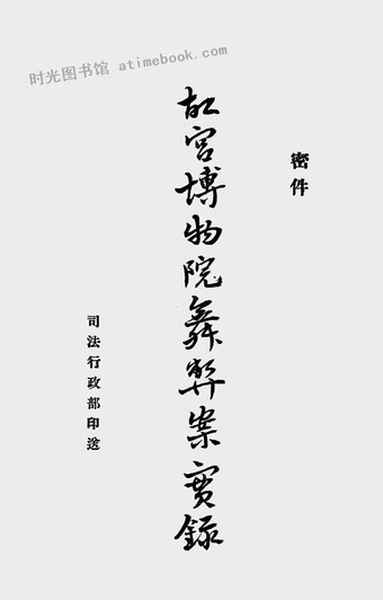 时光图书馆 atimebook.com
密件
故宫博物院舞弊案實錄
司法行政部印送